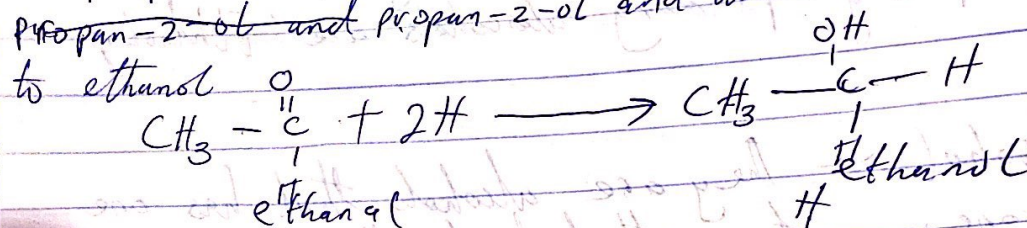 propan-2-ol and propan-2-ol and
to ethanol
O OH
CH₃ - C + 2H ⟶ CH₃ — C — H
H H
ethanal ethanol
H